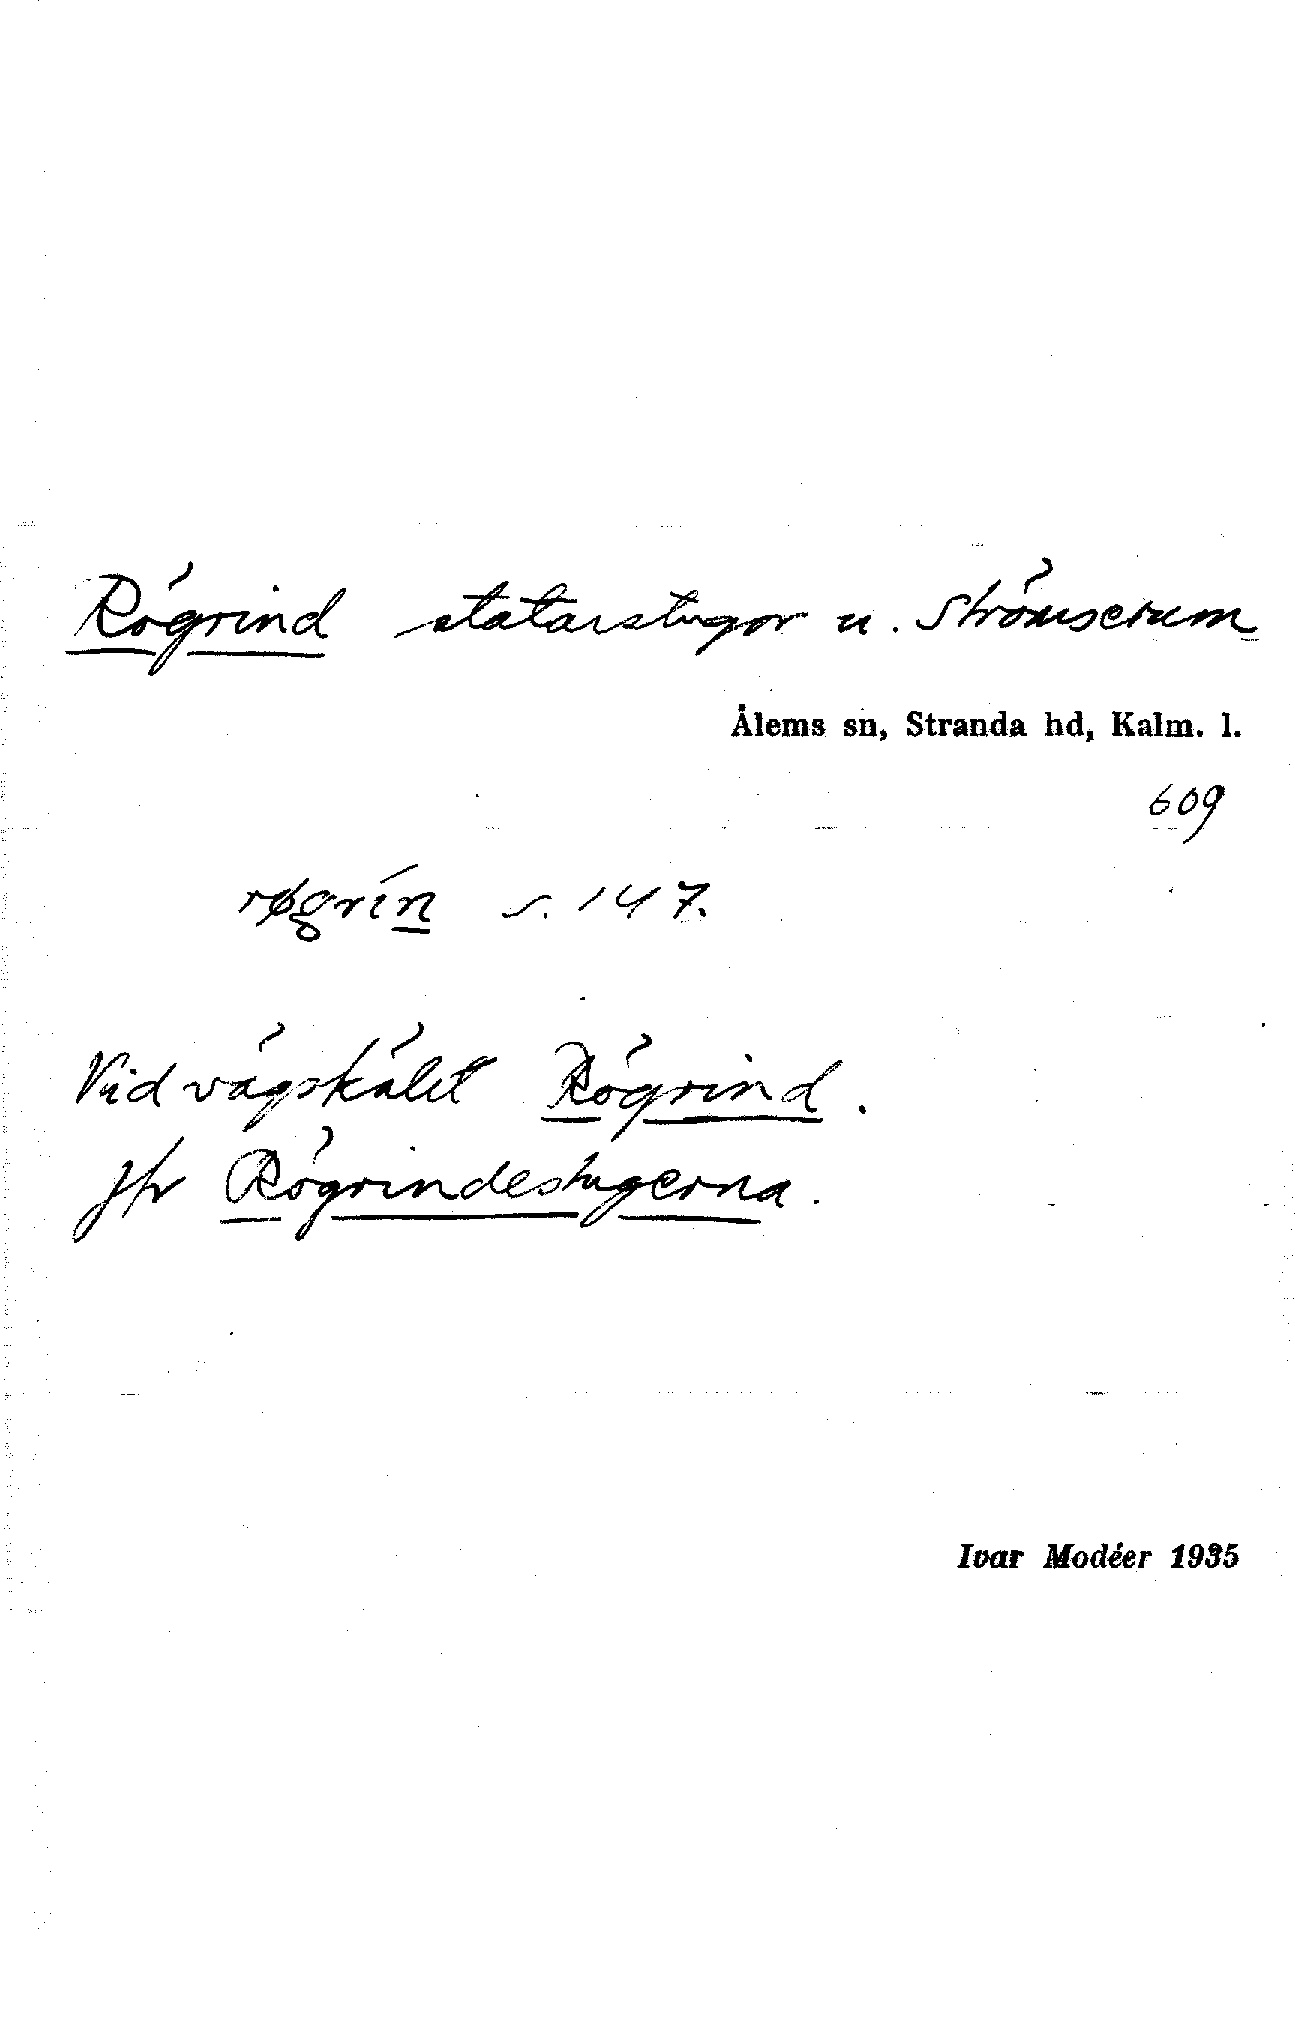 Rögrind statarstugor u. Strömserum
Ålems sn, Stranda hd, Kalm. l.
609
røgrín s. 147.
Vid vägskälet Rögrind.
Jfr Rögrindestugerna.
Ivar Modéer 1935